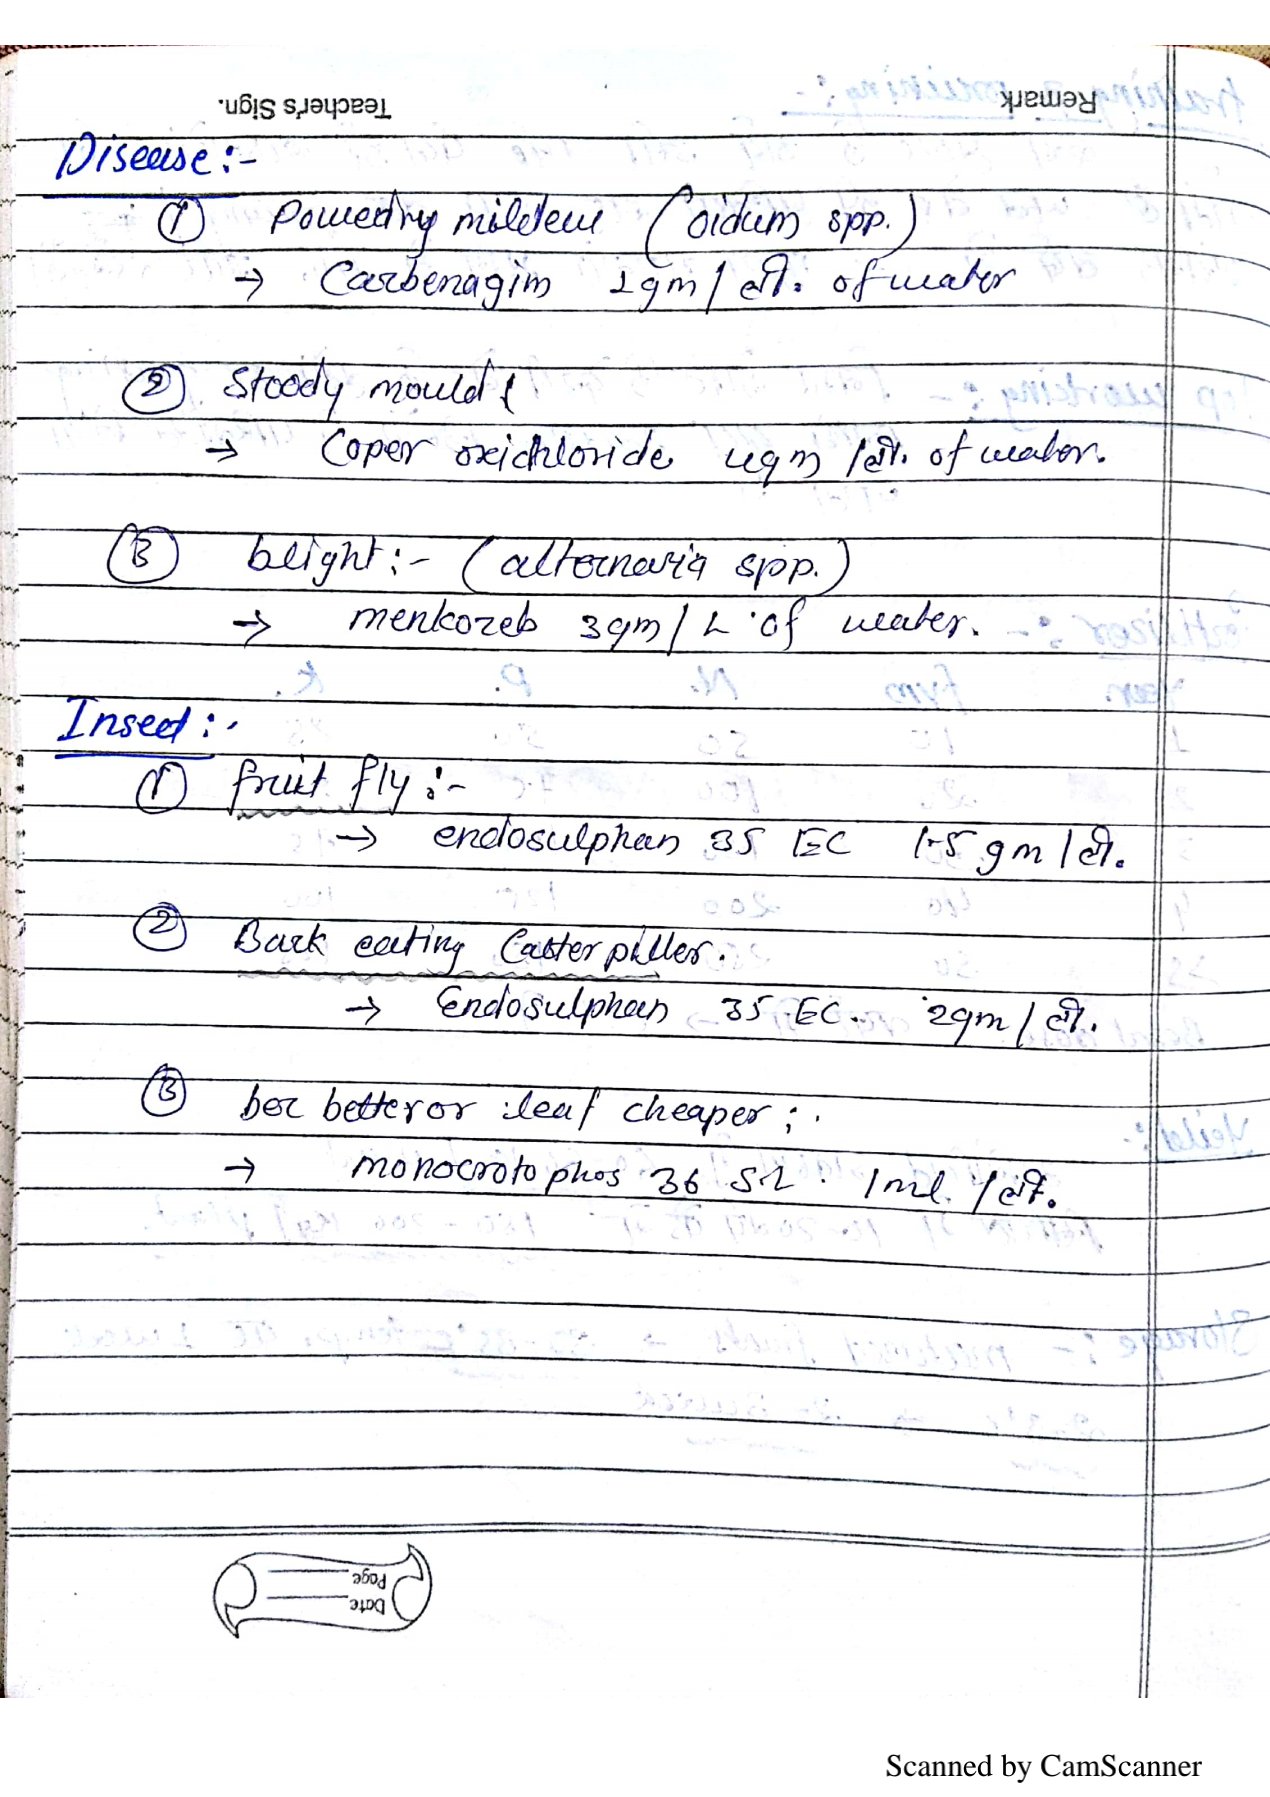 Teacher's Sign.
Remark
Disease :-
① Powedry mildew (oidum spp.)
→ Carbenagim 1gm / ली. of water
② Stoody mould {
→ Coper oxichloride 4gm / ली. of water.
③ blight :- (alternaria spp.)
→ menkozeb 3gm / L of water.
Insect :-
① fruit fly :-
→ endosulphan 35 EC 1.5 gm / ली.
② Bark eating Catterpiller.
→ Endosulphan 35 EC. 2gm / ली.
③ ber betteror leaf cheaper :-
→ monocrotophos 36 SL. 1ml. / ली.
Page
Date
Scanned by CamScanner